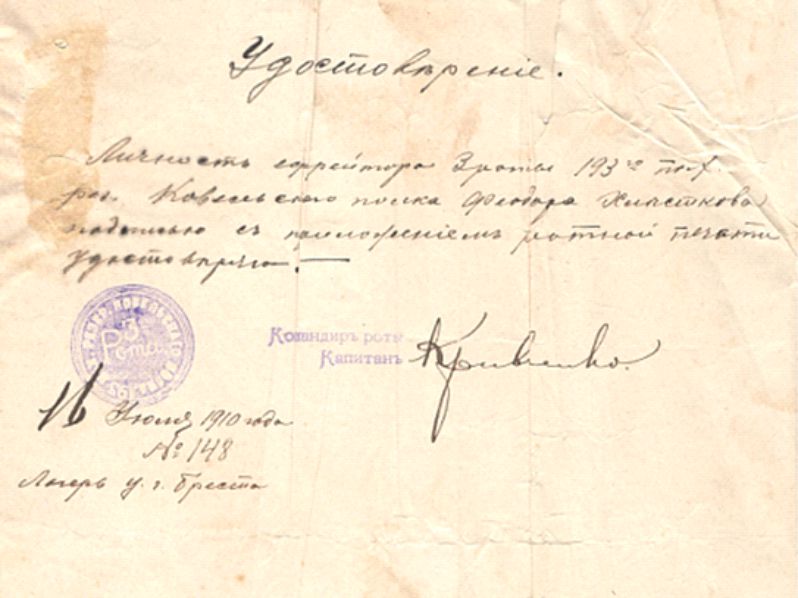 Удостовѣреніе.
Личность ефрейтора 3 роты 193го пѣх.
рез. Ковельского полка Феодора
подписью съ приложеніемъ ротной печати
удостовѣряю. —
3
Рота
Командиръ роты
Капитанъ
16 Июля 1910 года
№ 148
Лагерь у. г. Бреста